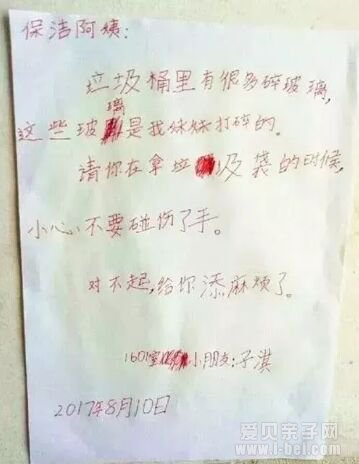 保洁阿姨:
垃圾桶里有很多碎玻璃,
这些玻璃是我妹妹打碎的。
请你在拿垃圾袋的时候,
小心不要碰伤了手。
对不起,给你添麻烦了。
1601室小朋友:子淇
2017年8月10日
爱贝亲子网
www.i-bei.com